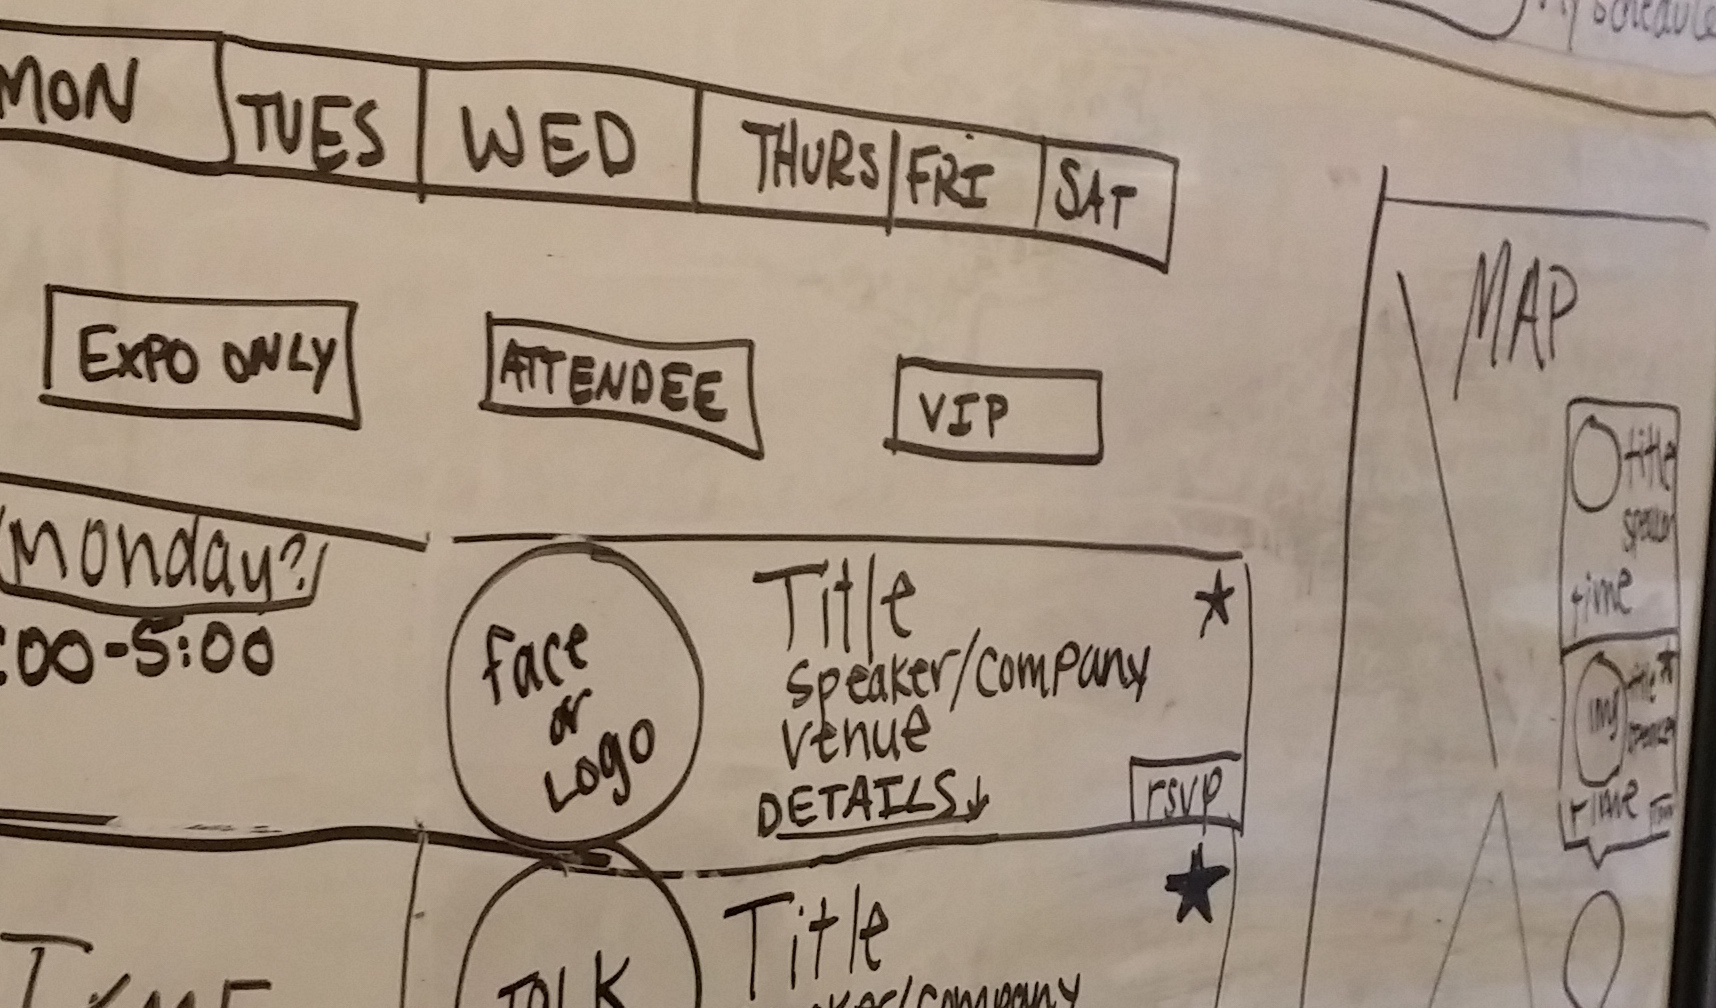 My Schedule
MON TUES WED THURS FRI SAT
EXPO ONLY ATTENDEE VIP
Monday?
:00-5:00
face
or
Logo
Title
speaker/company
venue
DETAILS↓
rsvp
TIME
TALK
Title
/company
MAP
title
speaker
time
img
title
speaker
time